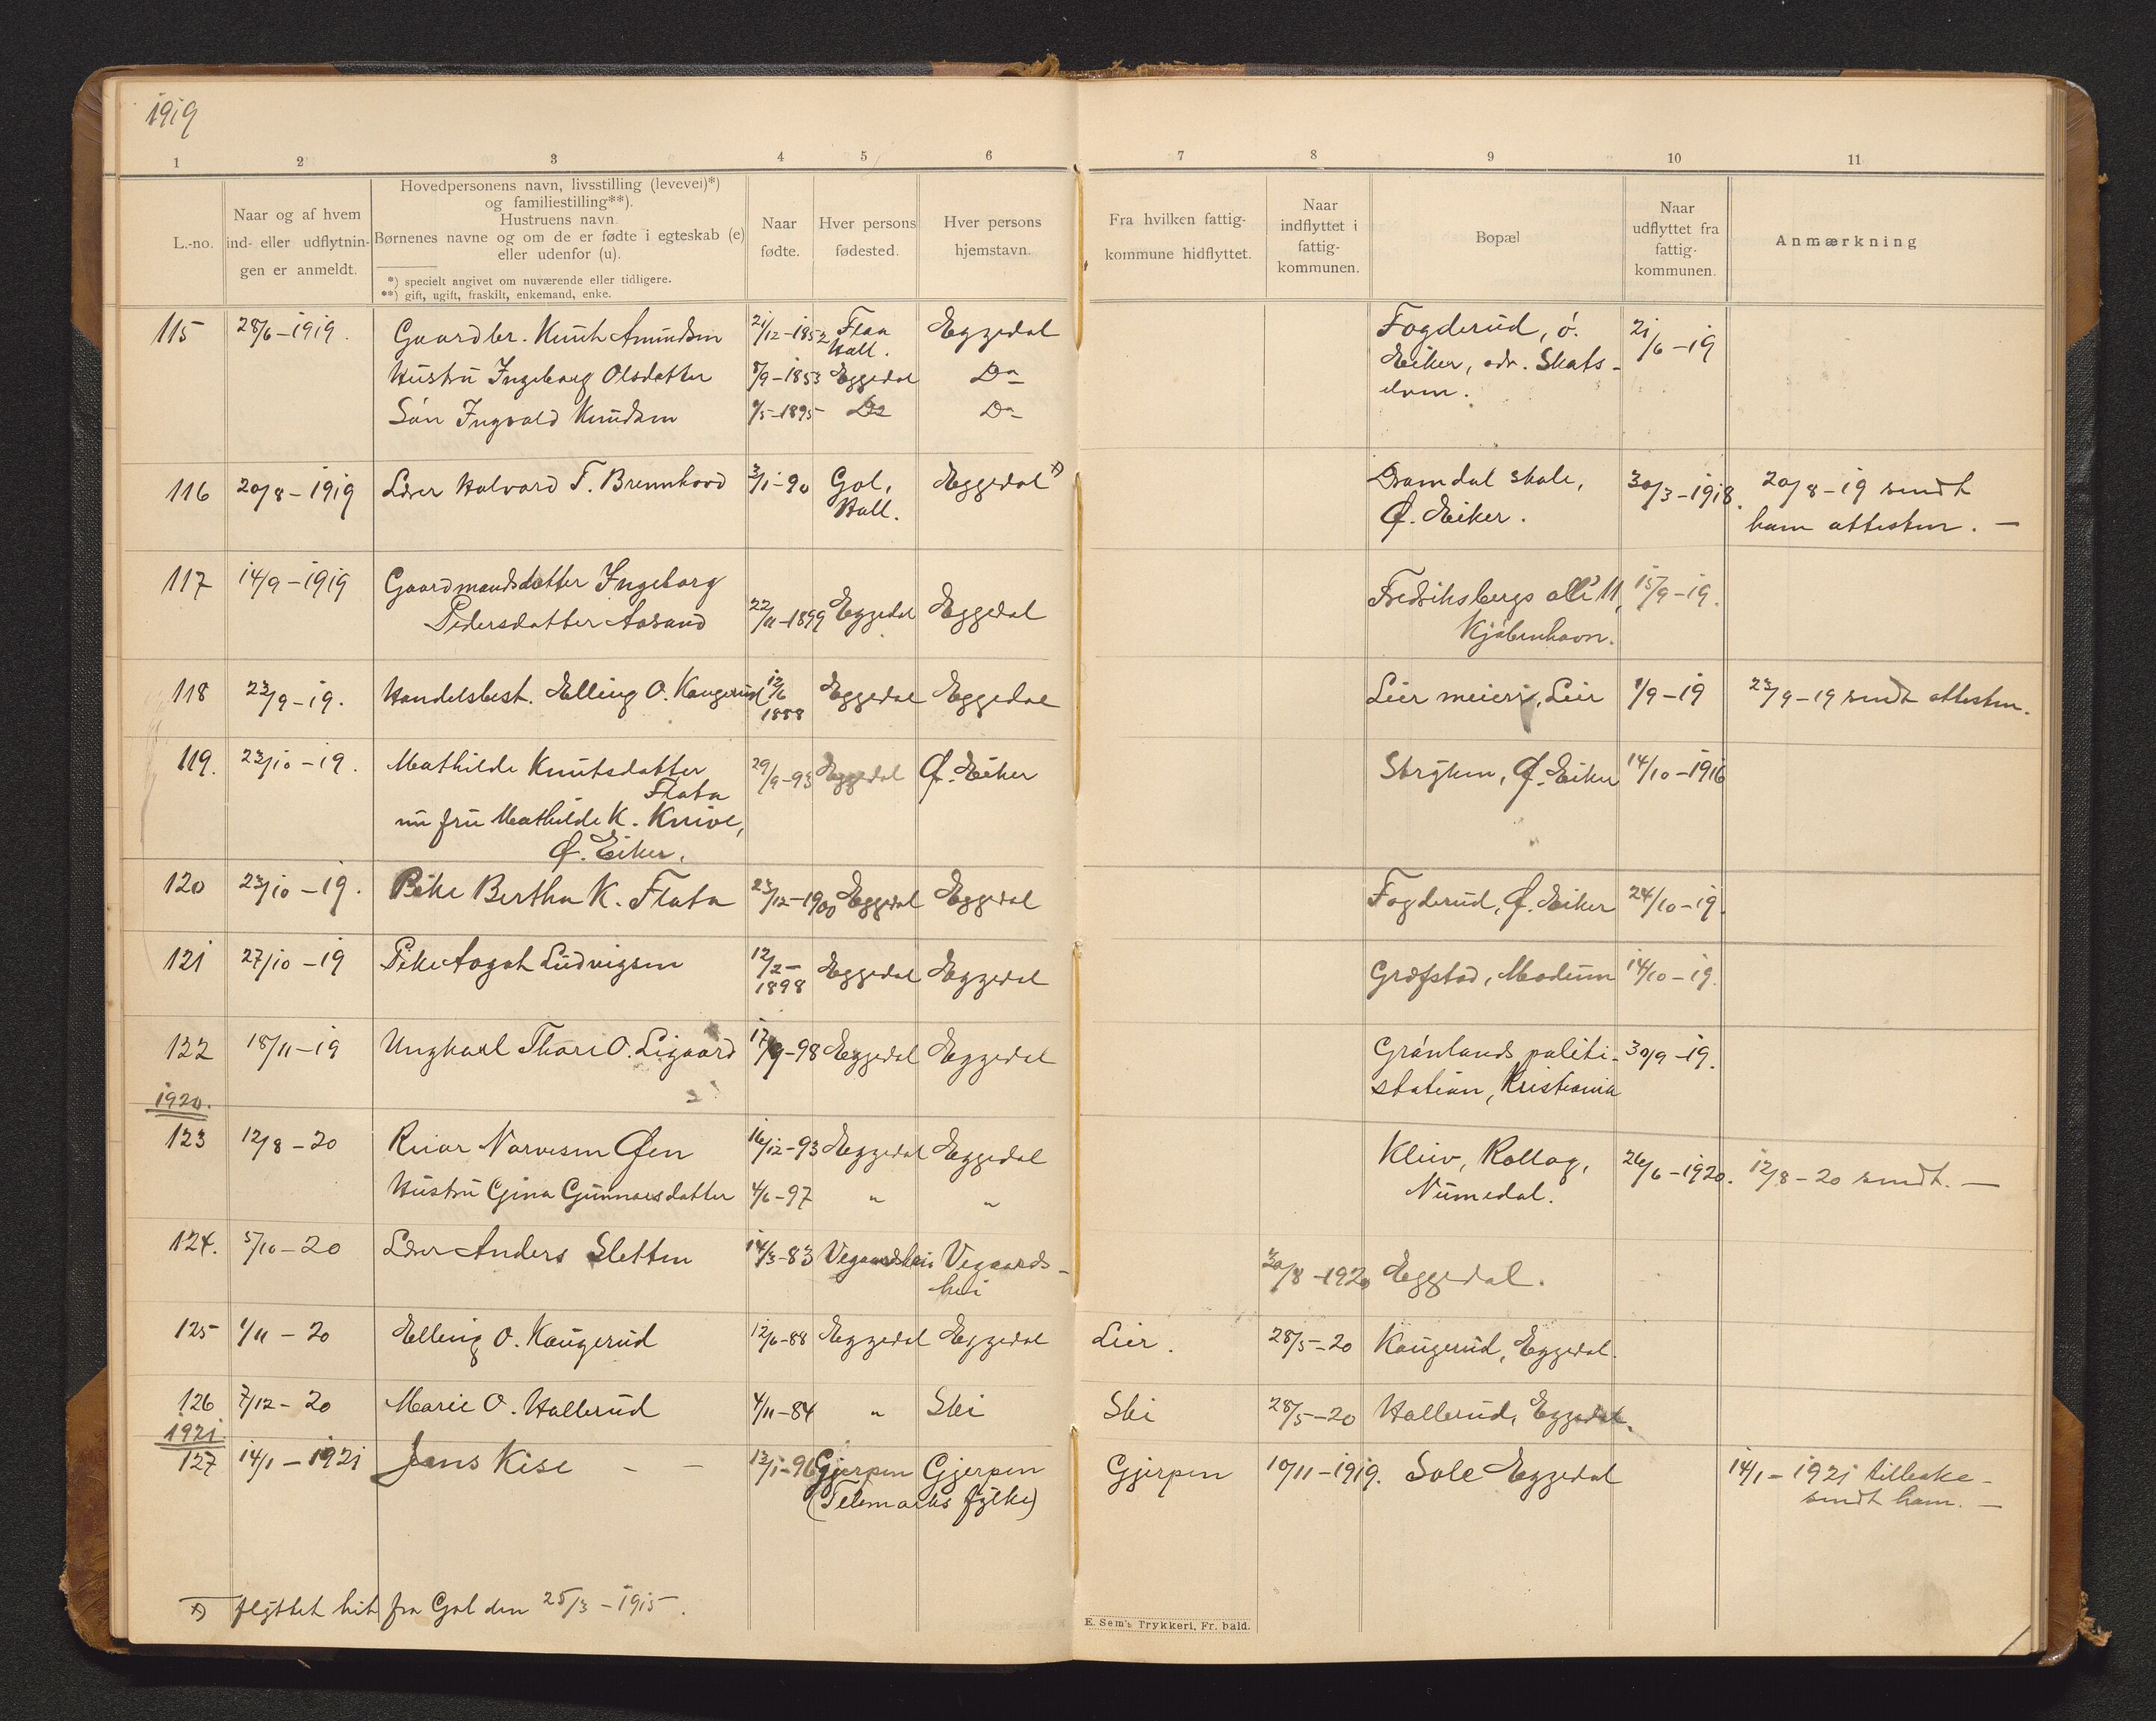 1919
1 2 3 4 5 6 7 8 9 10 11
L.-no.
Naar og af hvem
ind- eller udflytnin-
gen er anmeldt.
Hovedpersonens navn, livsstilling (levevei)*)
og familiestilling**).
Hustruens navn.
Børnenes navne og om de er fødte i egteskab (e)
eller udenfor (u).
*) specielt angivet om nuværende eller tidligere.
**) gift, ugift, fraskilt, enkemand, enke.
Naar
fødte.
Hver persons
fødested.
Hver persons
hjemstavn.
Fra hvilken fattig-
kommune hidflyttet.
Naar
indflyttet i
fattig-
kommunen.
Bopæl
Naar
udflyttet fra
fattig-
kommunen.
Anmærkning
115 28/6 - 1919. Gaardbr. Knut Amundsen 21/12 - 1852 Flaa Eggedal Fogderud, ö. 21/6 - 19
Hall. Eiker, adr. Skots-
Hustru Ingeborg Olsdatter 8/9 - 1853 Eggedal Do
elven.
Sön Ingvald Knudsen 9/5 - 1895 Do Do
116 20/8 - 1919 Lærer Halvard T. Brennhovd 3/1 - 90 Gol, Eggedal x) Dramdal skole, 30/3 - 1918. 20/8 - 19 sendt
Hall. Ø. Eiker. ham attesten. —
117 14/9 - 1919 Gaardmandsdatter Ingeborg Fredriksbergs allé 11, 15/9 - 19.
Pedersdatter Aasand 22/11 - 1899 Eggedal Eggedal Kjöbenhavn.
118 23/9 - 19. Handelsbest. Elling O. Kaugerud 12/6 1888 Eggedal Eggedal Lier meieri, Lier 1/9 - 19 23/9 - 19 sendt attesten.
119. 23/10 - 19. Mathilde Knutsdatter 29/9 - 93 Eggedal Ø. Eiker Stryken, Ø. Eiker 14/10 - 1916
Flata
nu fru Mathilde K. Knive,
Ø. Eiker.
120 23/10 - 19. Pike Bertha K. Flata 23/12 - 1900 Eggedal Eggedal Fogderud, Ø. Eiker 24/10 - 19.
121 27/10 - 19 Pike Aagot Ludvigsen 12/2 - 1898 Eggedal Eggedal Græfstad, Modum 14/10 - 19.
122 18/11 - 19 Ungkarl Thore O. Ligaard 17/9 - 98 Eggedal Eggedal Grönlands politi- 30/9 - 19.
station, Kristiania
1920.
123 12/8 - 20 Reiar Narvesen Øen 16/12 - 93 Eggedal Eggedal Kleiv, Rollag, 26/6 - 1920. 12/8 - 20 sendt. —
Hustru Gina Gunnarsdatter 4/6 - 97 " " Numedal.
124. 5/10 - 20 Lærer Anders Sletten 14/3 - 83 Vegaardshei Vegaards- 30/8 - 1920 Eggedal.
hei
125 1/11 - 20 Elling O. Kaugerud 12/6 - 88 Eggedal Eggedal Lier. 28/5 - 20 Kaugerud, Eggedal.
126 7/12 - 20 Marie O. Hallerud 4/11 - 84 " Ski Ski 28/5 - 20 Hallerud, Eggedal.
1921.
127 14/1 - 1921 Jens Kise - - 13/1 - 96 Gjerpen Gjerpen Gjerpen 10/11 - 1919. Sole Eggedal 14/1 - 1921 tilbake-
(Telemarks fylke) sendt ham. —
x) flyttet hit fra Gol den 25/3 - 1915.
E. Sem's Trykkeri, Fr.hald.